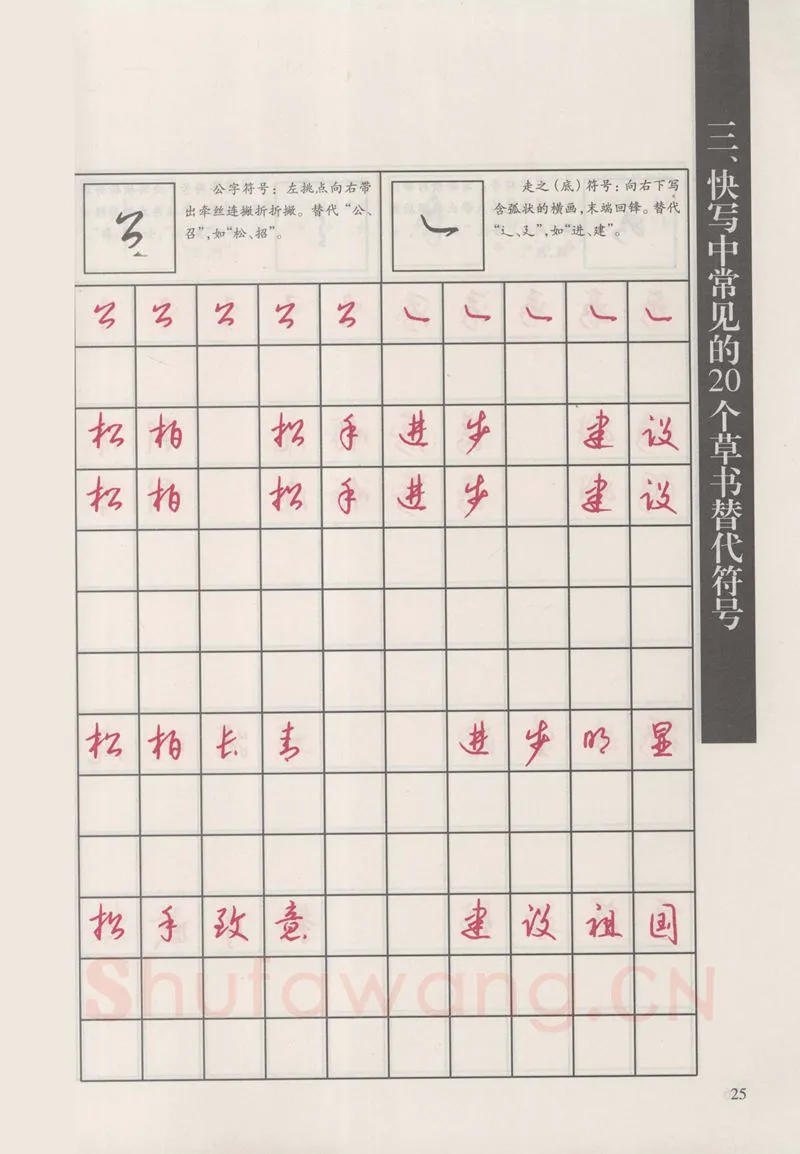 三、快写中常见的20个草书替代符号
公字符号：左挑点向右带
出牵丝连撇折折撇。替代“公、
召”,如“松、招”。
走之(底)符号：向右下写
含弧状的横画,末端回锋。替代
“辶、廴”,如“进、建”。
松柏 招手进步 建设
松柏 招手进步 建设
松柏长青 进步明显
招手致意 建设祖国
Shufawang.CN
25